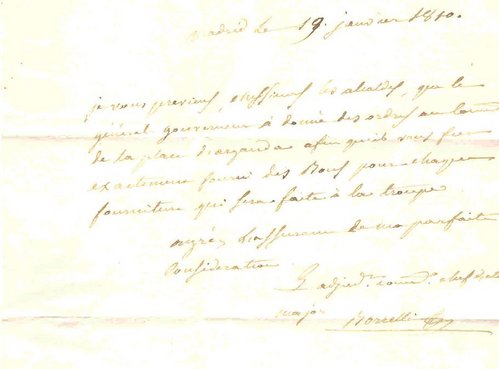 Madrid le 19. janvier 1810.
je vous previens, Messieurs les alcaldes, que le
général gouverneur à donné des ordres au
de la place d'arganda afin qu'il vous
exactement fourni des Bons pour chaque
fourniture qui sera faite à la troupe
agréez L'assurance de ma parfaite
Considération
L'adjud.t comm.t chef d'état
major Borrelli